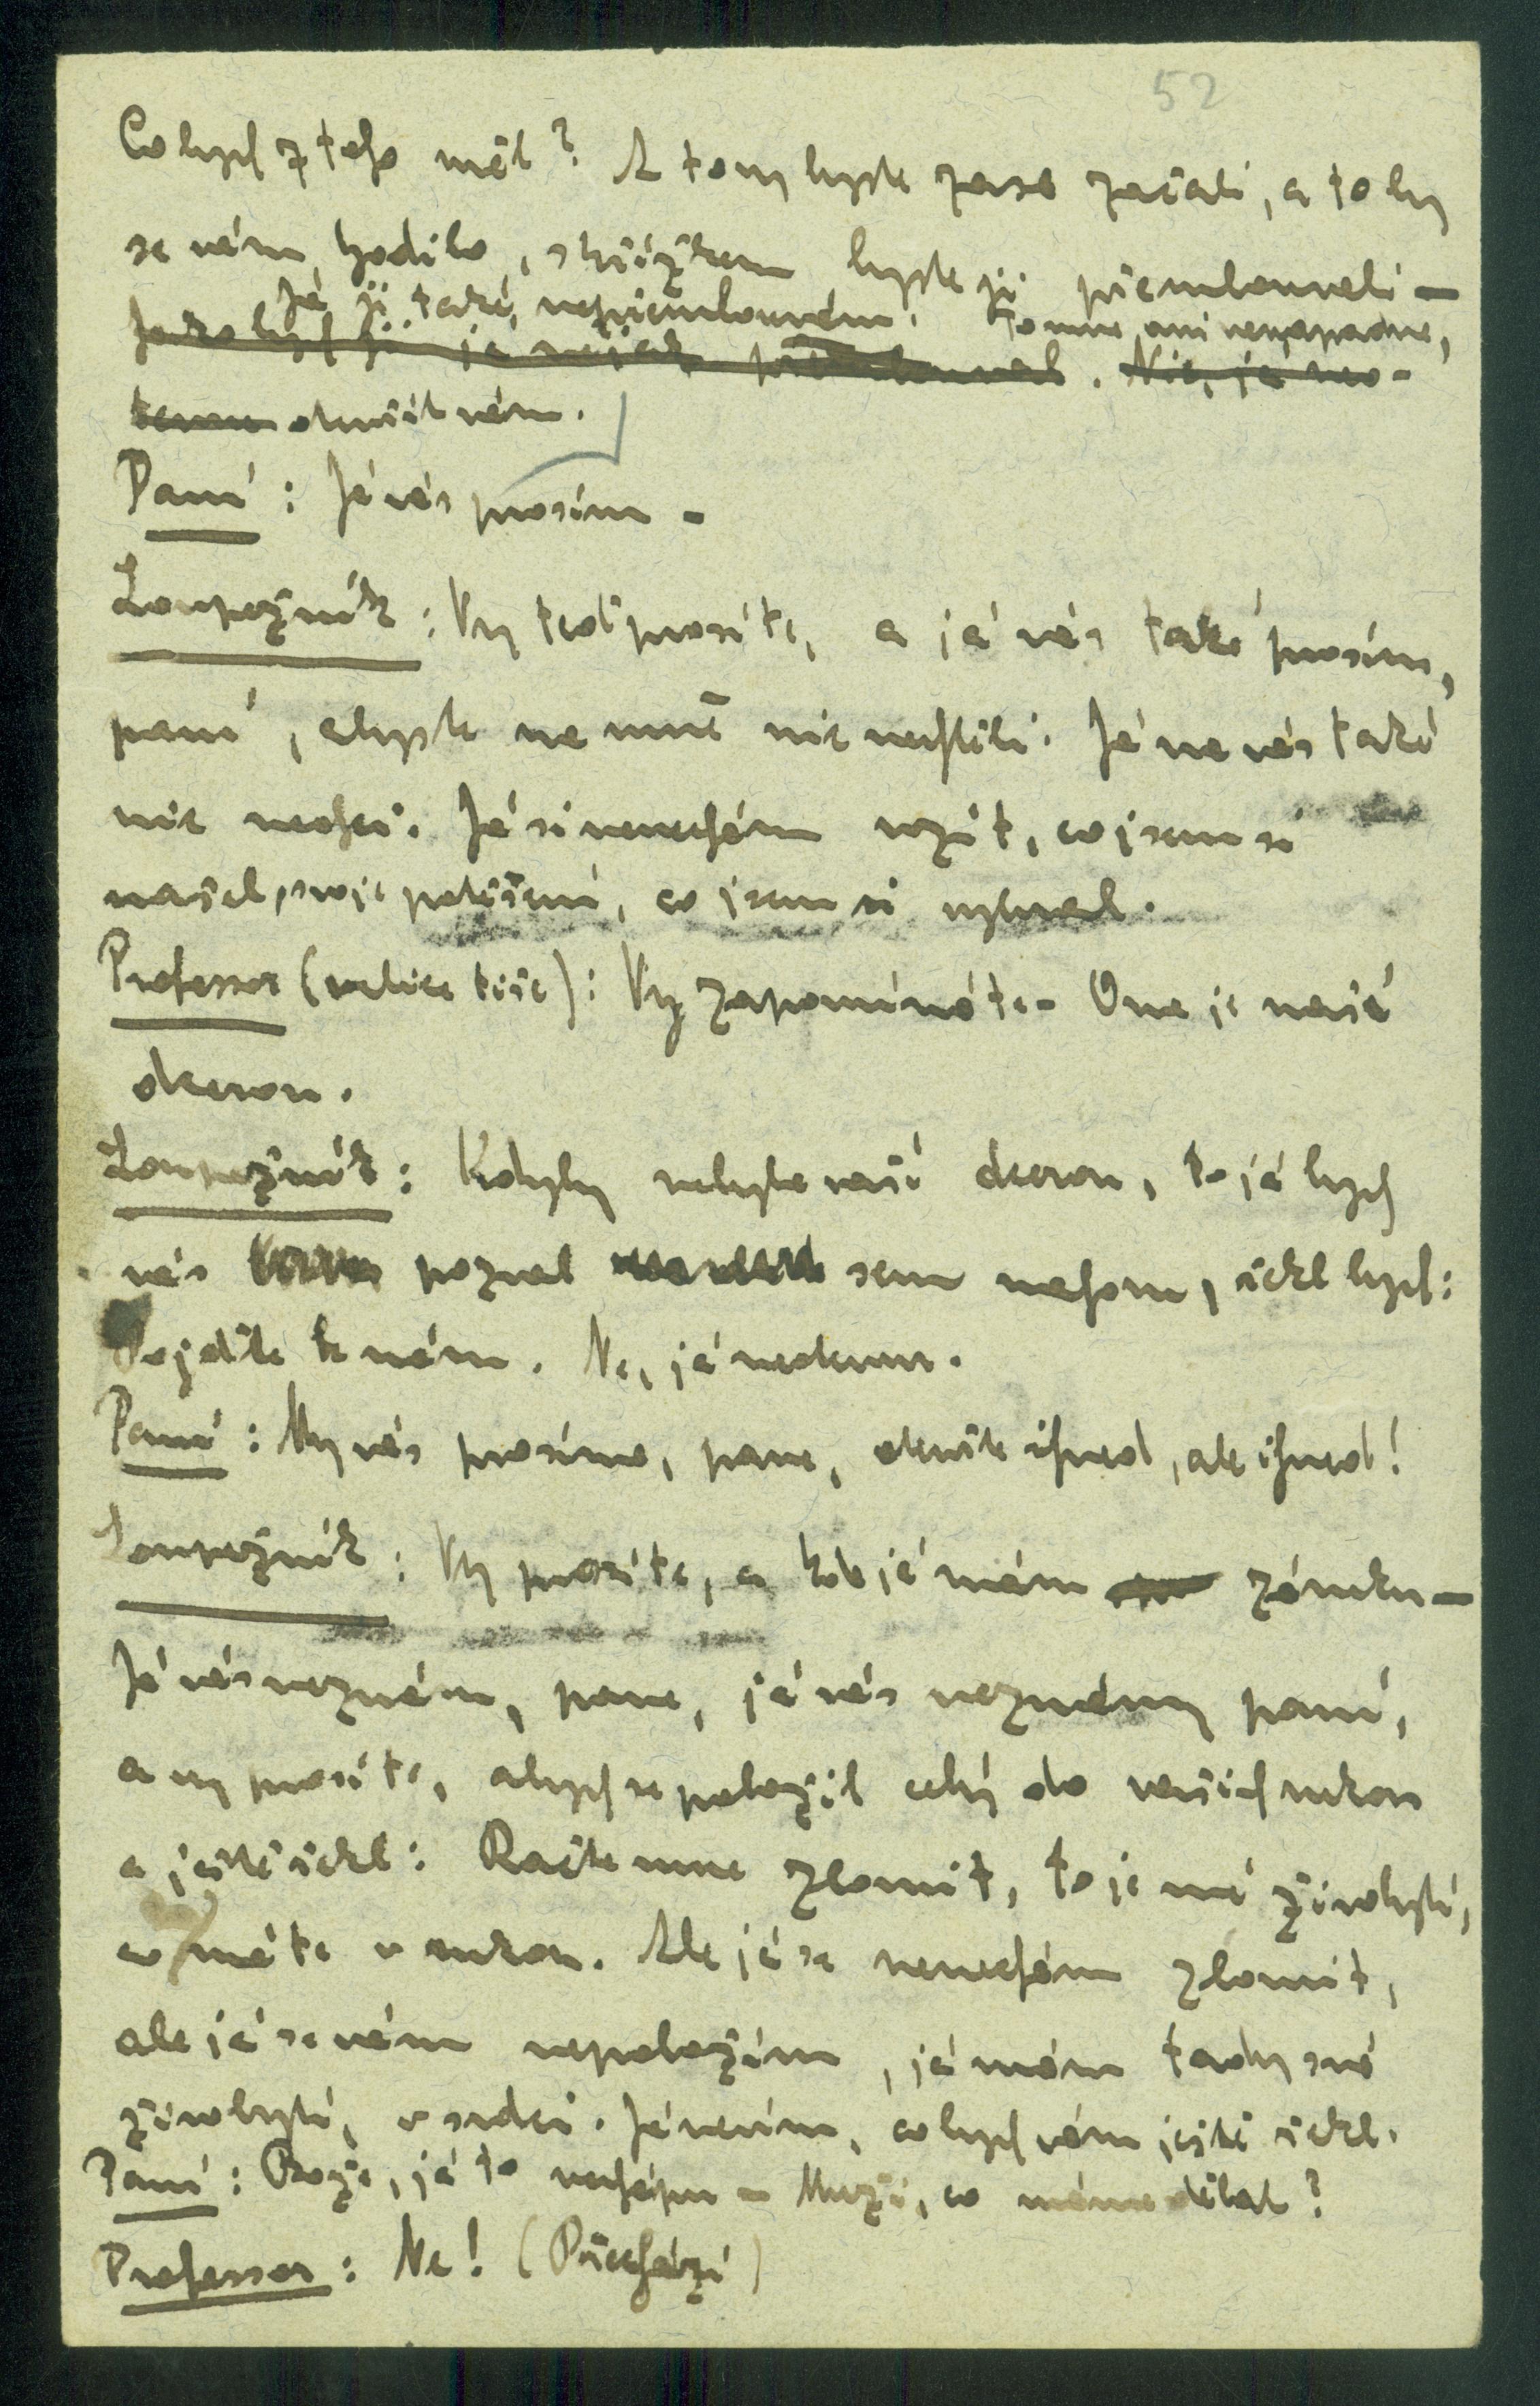 52
Co bych z toho měl? A to my byste zase začali, a to by
se vám hodilo, s křížkem byste ji přemlouvali –
Já ji také nepřemlouvám. To mne ani nenapadne,
Jako bych ji já nějak přemlouval. Nic, já ne-
otevřít vám.
Paní: Já vás prosím –
Loupežník: Vy teď prosíte, a já vás také prosím,
paní, abyste na mně nic nechtěli. Já na vás také
nic nechci. Já si nenechám vzít, co jsem si
našel, svoje potěšení, co jsem si vybral.
Professor (velice tiše): Vy zapomínáte – Ona je naší
dcerou.
Loupežník: Kdyby nebyla vaší dcerou, to já bych
vás pozval sem nahoru, řekl bych:
Pojďte k nám. Ne, já nedemu.
Paní: My vás prosíme, pane, otevřte ihned, ale ihned!
Loupežník: Vy prosíte, a kde já mám záruku –
Já vás neznám, pane, já vás neznám, paní,
a vy prosíte, abych se položil celý do vašich rukou
a ještě řekl: Račte mne zlomit, to je mé živobytí,
co máte v rukou. Ale já se nenechám zlomit,
ale já se vám nepoložím, já mám tady své
živobytí, v srdci. Já nevím, co bych vám ještě řekl.
Paní: Bože, já to nechápu – Muži, co máme dělat?
Professor: Ne! (Přechází)